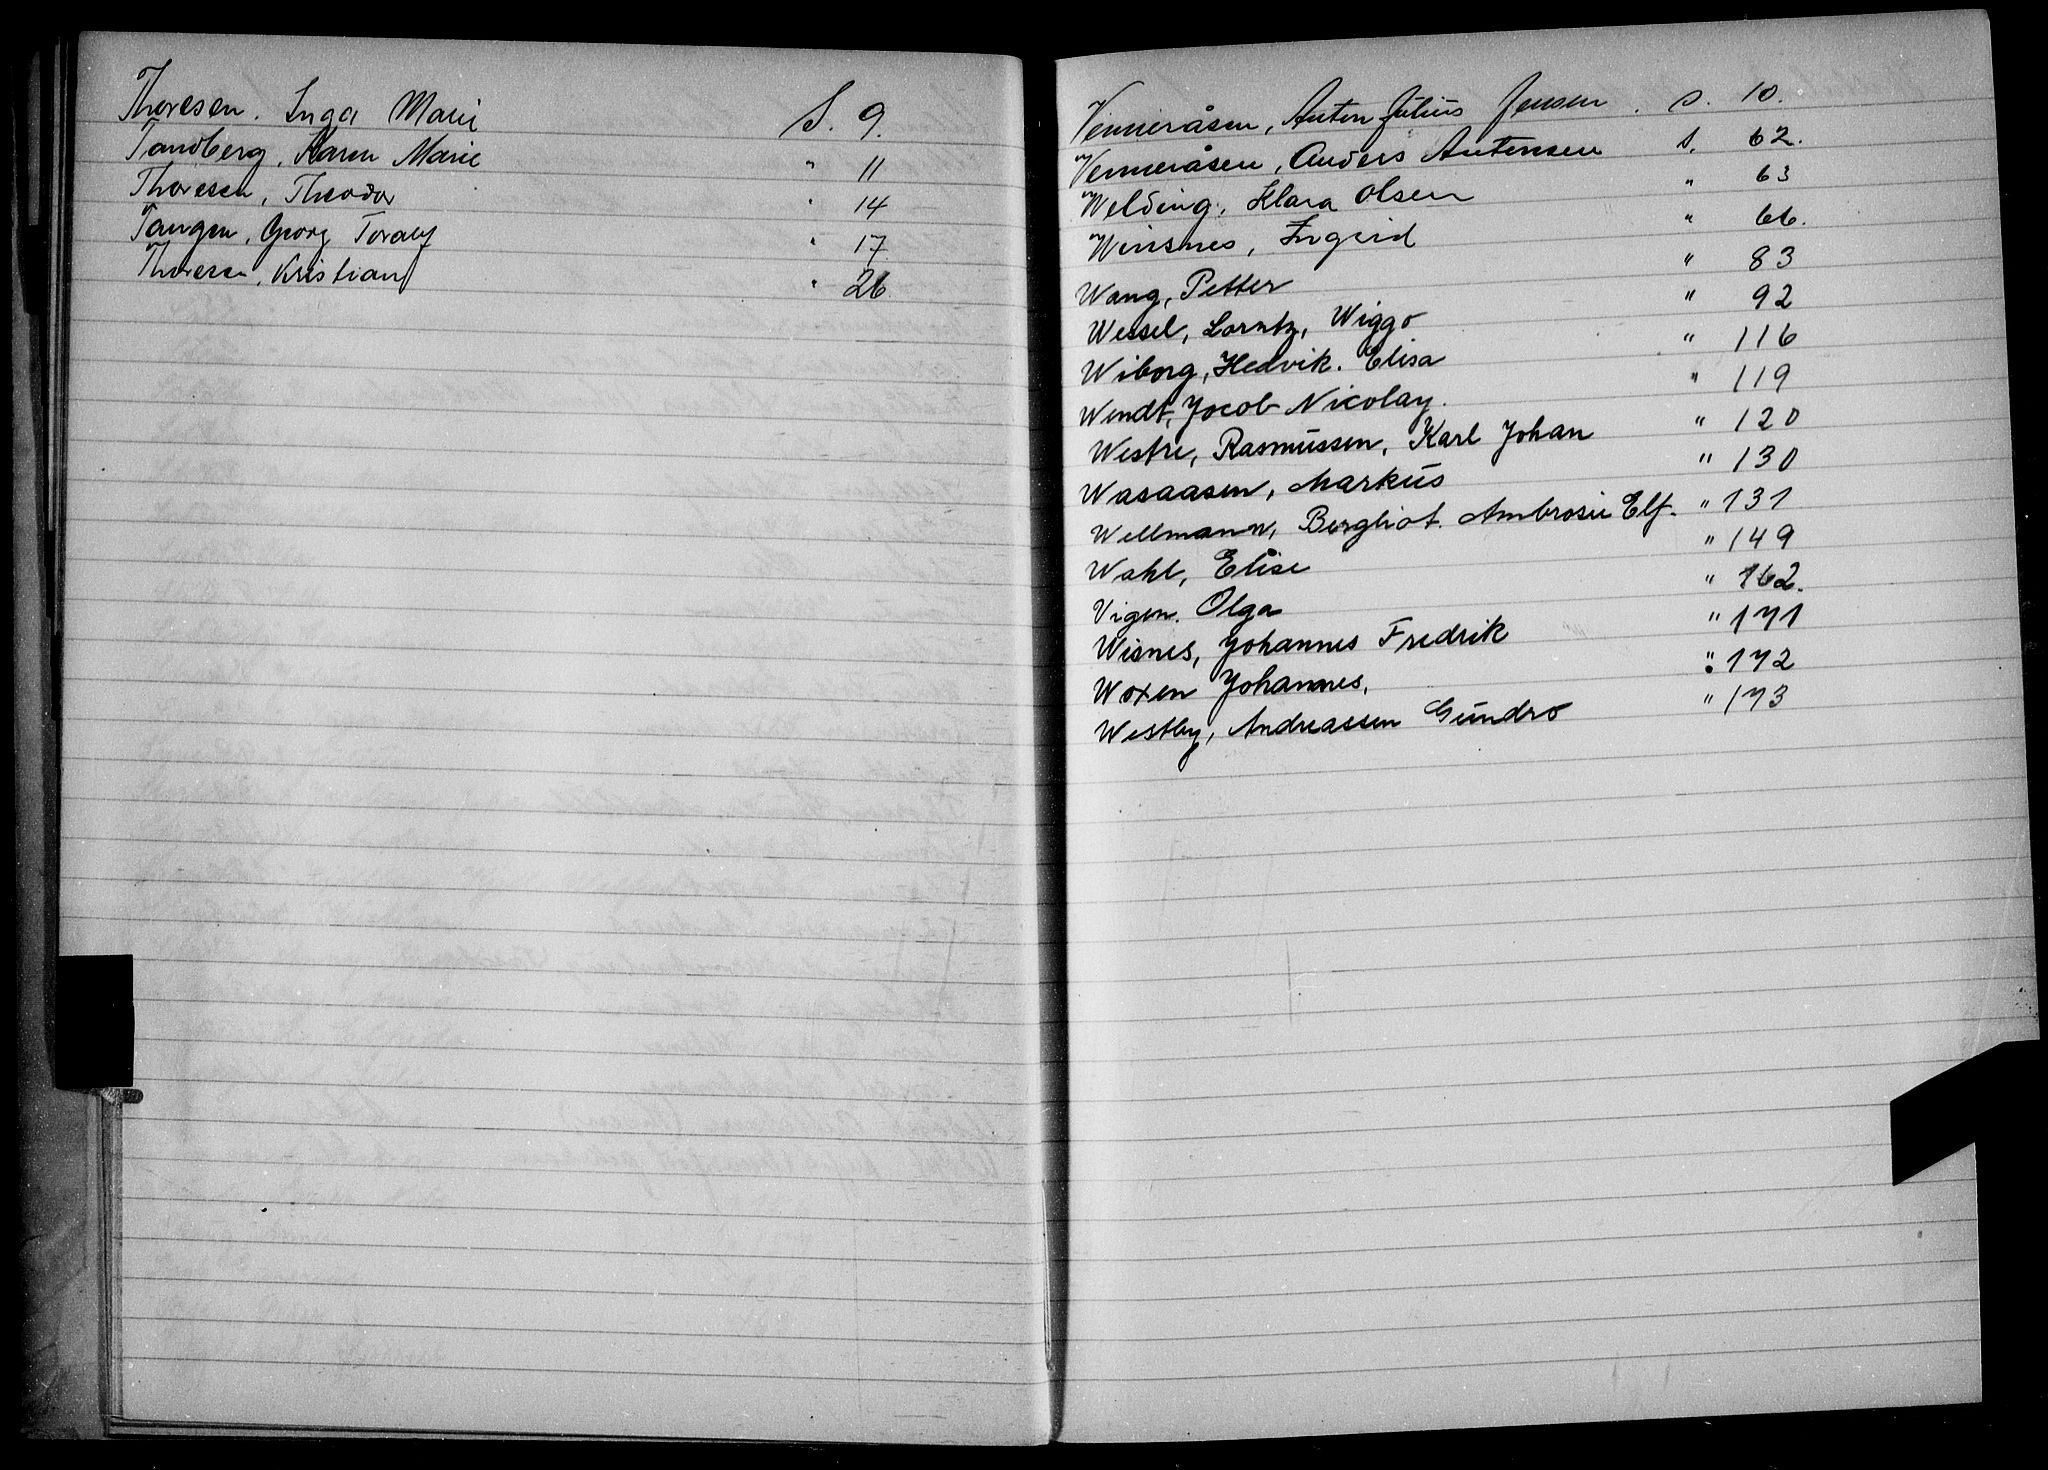 Thoresen. Inga Marie S. 9.
Tandberg, Karen Marie " 11
Thoresen, Theodor " 14
Tangen, Georg Toralf " 17
Thoresen, Kristian " 26.
Venneråsen, Anton Julius Jensen. s. 10.
Venneråsen, Anders Antonsen s. 62.
Welding, Klara Olsen " 63
Winsnes, Ingrid " 66.
Wang, Petter " 83
Wessel, Lorntz, Wiggo " 92
Wiborg, Hedvik. Elisa " 116
Wendt, Jocob Nicolay. " 119
Westre, Rasmussen, Karl Johan " 120
Wasaasen, Markus " 130
Wellmann, Bergliot. Ambrosie Elf. " 131
Wahl, Elise " 149
Vigen. Olga " 162.
Wisnes, Johannes Fredrik " 171
Woxen Johannes, " 172
Westby, Andreassen Gundro " 173